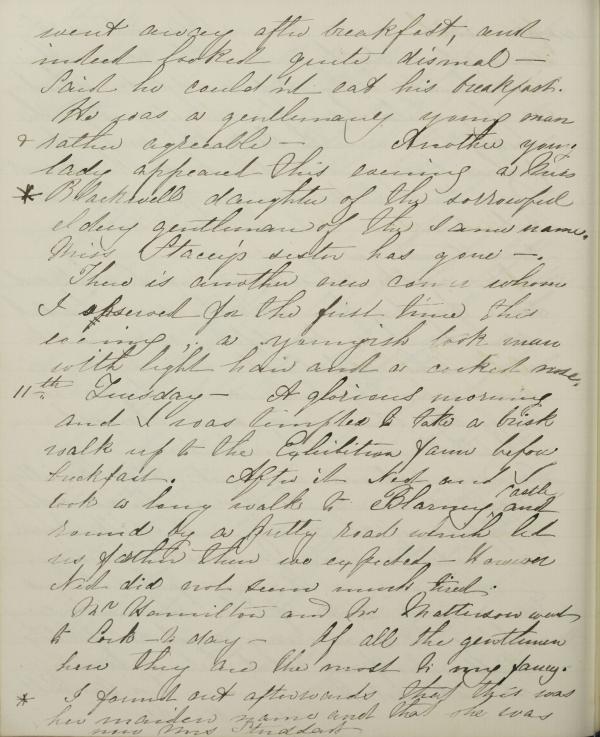 went away after breakfast, and
indeed looked quite dismal —
Said he could'nt eat his breakfast.
He was a gentlemanly young man
& rather agreeable — Another young
lady appeared this evening a Miss
* Blackwell daughter of the sorrowful
eldery gentleman of the same name.
Miss Stacey's sister has gone —
There is another new comer whom
I observed for the first time this
evening, a youngish look man
with light hair and a cocked nose.
11th. Tuesday — A glorious morning
and I was tempted to take a brisk
walk up to the Exhibition farm before
breakfast. After it Ned and I
took a long walk to Blarney Castle and
round by a pretty road which led
us farther than we expected — However
Ned did not seem much tired.
Mr Hamilton and Mr Matterson went
to Cork — to day — Of all the gentlemen
here they are the most to my fancy.
* I found out afterwards that this was
her maiden name and that she was
now Mrs